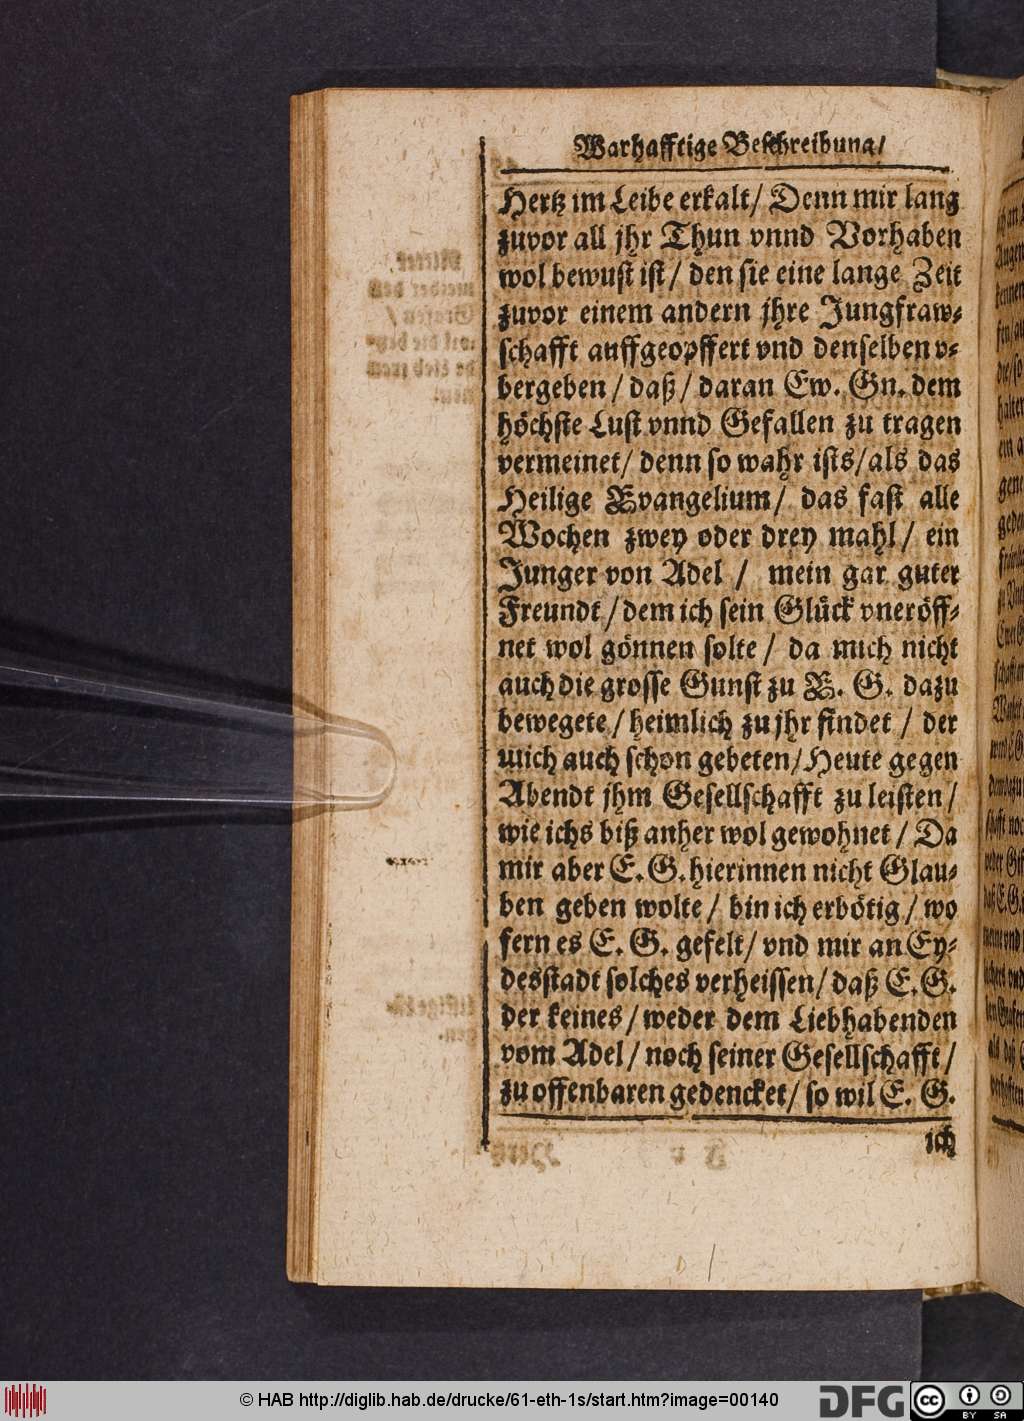 Warhafftige Beschreibung/
Hertz im Leibe erkalt/ Denn mir lang
zuvor all jhr Thun vnnd Vorhaben
wol bewust ist/ den sie eine lange Zeit
zuvor einem andern jhre Jungfraw-
schafft auffgeopffert vnd denselben v-
bergeben/ daß/ daran Ew. Gn. dem
höchste Lust vnnd Gefallen zu tragen
vermeinet/ denn so wahr ists/ als das
Heilige Evangelium/ das fast alle
Wochen zwey oder drey mahl/ ein
Junger von Adel/ mein gar guter
Freundt/ dem ich sein Glück vneröff-
net wol gönnen solte/ da mich nicht
auch die grosse Gunst zu E. G. dazu
bewegete/ heimlich zu jhr findet/ der
mich auch schon gebeten/ Heute gegen
Abendt jhm Gesellschafft zu leisten/
wie ichs biß anher wol gewohnet/ Da
mir aber E. G. hierinnen nicht Glau-
ben geben wolte/ bin ich erbötig/ wo
fern es E. G. gefelt/ vnd mir an Ey-
desstadt solches verheissen/ daß E. G.
der keines/ weder dem Liebhabenden
vom Adel/ noch seiner Gesellschafft/
zu offenbaren gedencket/ so wil E. G.
ich
© HAB http://diglib.hab.de/drucke/61-eth-1s/start.htm?image=00140
DFG
cc
BY SA